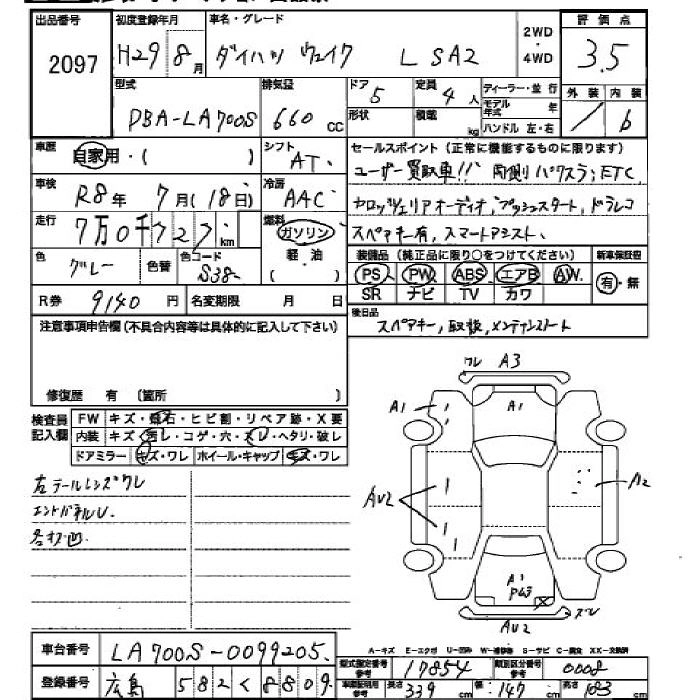 出品番号 初度登録年月 車名・グレード 2WD 評価点
2097 H29年8月 ダイハツ ウェイク L SA2 ・ 3.5
4WD
型式 排気量 ドア 定員 ディーラー・並行 外装 内装
DBA-LA700S 660cc 5 4人 モデル年式 年 b
形状 積載 kg ハンドル 左・右
車歴 自家用・( ) シフト AT セールスポイント(正常に機能するものに限ります)
車検 R8年7月(18日) 冷房 AAC ユーザー買取車!! 両側パワスラ;ETC
走行 7万0千727km 燃料 ガソリン カロッツェリアオーディオ,プッシュスタート,ドラレコ
軽・油 スペアキー有,スマートアシスト.
色 グレー 色替 色コード S38 ( ) 装備品(純正品に限り○をつけてください) 新車保証書
PS PW ABS エアB AW 有・無
R券 9140円 名変期限 月 日 SR ナビ TV カワ
注意事項申告欄(不具合内容等は具体的に記入して下さい) 後日品
スペアキー,取説,メンテナンスノート
修復歴 有 (箇所 )
ワレ A3
検査員 FW キズ・飛石・ヒビ割・リペア跡・X要 A1 A1
記入欄 内装 キズ・汚レ・コゲ・穴・スレ・ヘタリ・破レ
ドアミラー キズ・ワレ ホイール・キャップ キズ・ワレ
右テールレンズワレ A2
エンドパネルU. AU2
各打凹.
A1
P43
AU2 ズレ
車台番号 LA700S-0099205. A-キズ E-エクボ U-凹み W-補修跡 S-サビ C-腐食 XX-交換済
型式指定番号 参考 17854 類別区分番号 参考 0008
登録番号 広島 582く8809 車庫証明用 参考 長さ 339cm 幅 147cm 高さ 183cm